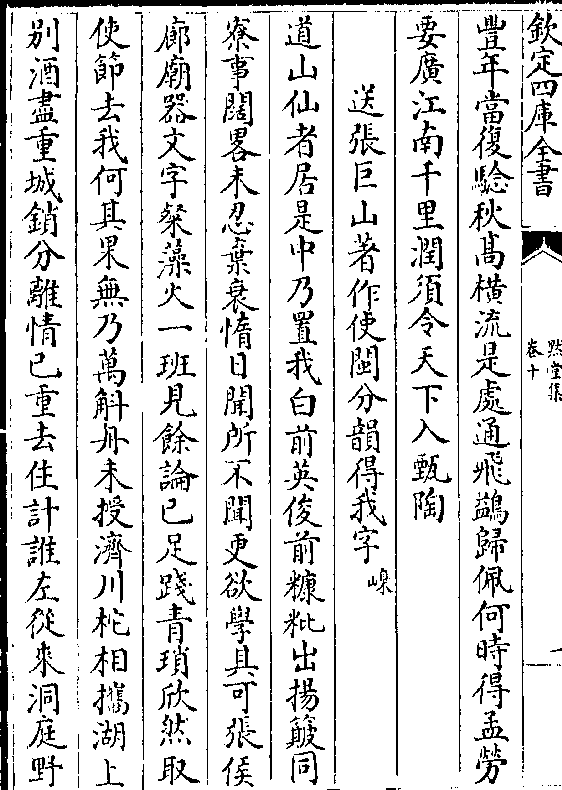 欽定四庫全書
默堂集
卷十
豐年當復驗秋高橫流是處通飛鷁歸佩何時得孟勞
要廣江南千里潤須令天下入甄陶
送張巨山著作使閩分韻得我字嵲
道山仙者居是中乃置我白前英俊前糠粃出揚簸同
寮事闊畧未忍棄衰惰日聞所不聞更欲學具可張侯
廊廟器文字粲藻火一班見餘論已足踐青瑣欣然取
使節去我何其果無乃萬斛舟未授濟川柁相攜湖上
別酒盡重城鎖分離情已重去住計誰左從來洞庭野